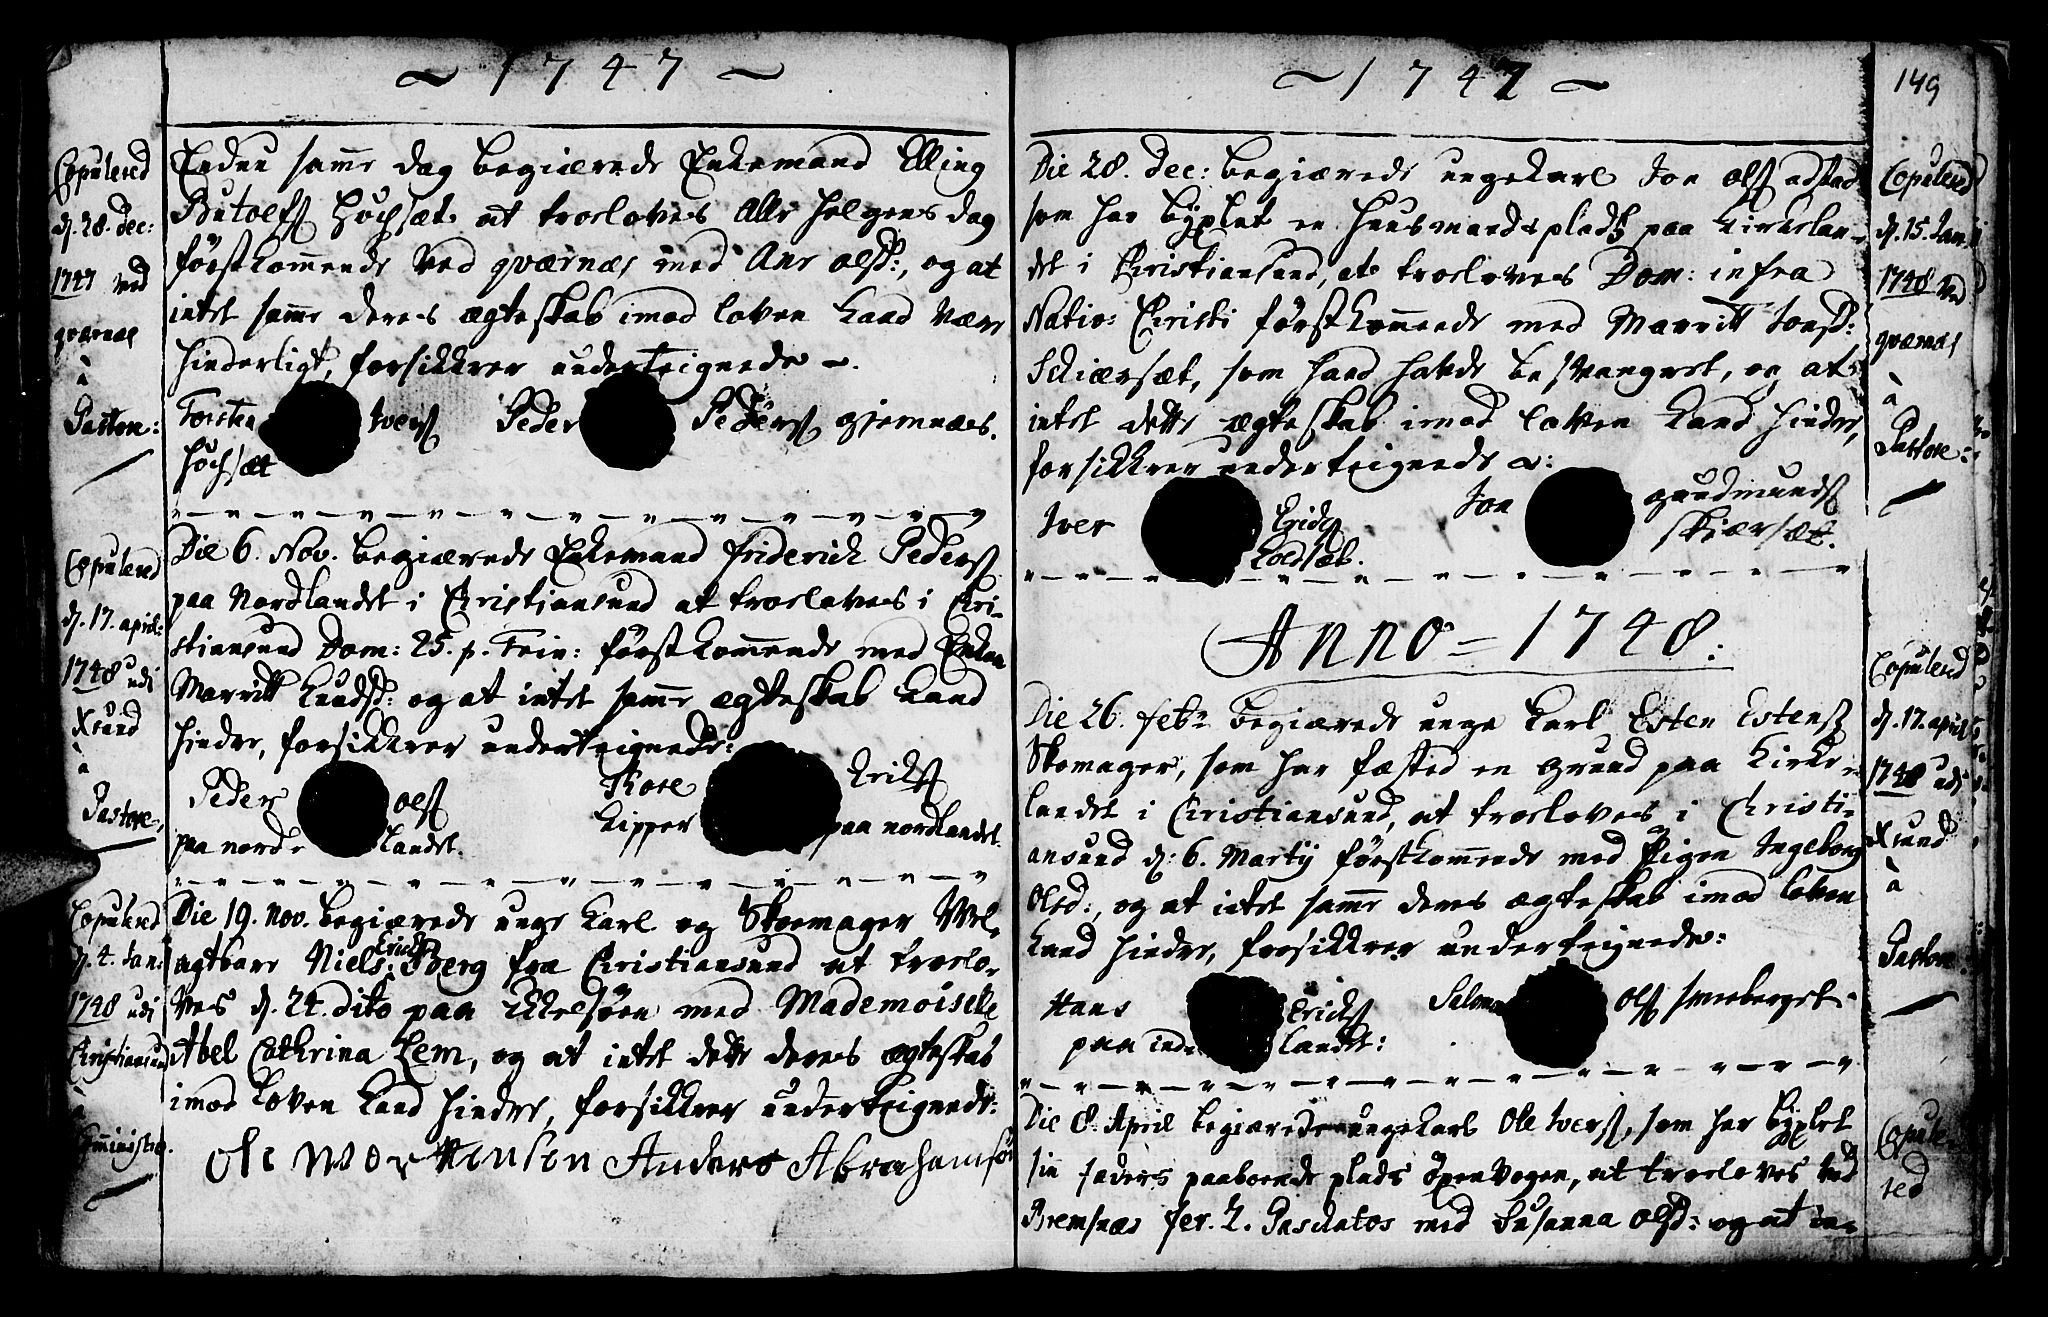 ~ 1747 ~
Copulered
d. 28. dec:
1747 ved
qværnæs
à
Pastore:
Endnu samme dag begiærede Enkemand Elling
Butolfs Høchsæt at troeloves Alle helgens dag
førstkommende ved qværnæs med Ane olsd:, og at
intet samme deres ægteskab imod loven kand være
hinderligt, forsikkrer underteignede.
Torsten Ivers Peder Peders gjemnæs.
Høchsæt
Copulered
d. 17. april:
1748 udi
Xsund
à
Pastore,
Die 6. Nov. begiærede Enkemand Friderich Peders
paa Nordlandet i Christiansund at troeloves i Chri-
stiansund Dom: 25. p. Trin: førstkommende med Enken
Marritt Knudsd: og at intet samme ægteskab kand
hindre, forsikkrer underteignede:
Peder ols Thore Eriks
paa nord- landet. Kipper paa nordlandet.
Copulered
d. 4. Jan:
1748 udi
Christiansund
à
Die 19. Nov. begiærede unge karl og Skoemager Vel-
agtbare Niels Erichs Berg fra Christiansund at troelo-
ves d. 24. dito paa Ekelsøen med Mademoiselle
Abel Cathrina Lem, og at intet dette deres ægteskab
imod Loven kand hindre, forsikkrer underteignede:
Ole Mortensen Anders Abrahamsøn
~ 1747 ~
149
Copulered
d. 15. Jan:
1748 ved
qværnæs
à
Pastore:
Die 28. dec: begiærede ungekarl Jon ols adstad
som har byxlet en huusmands plads paa Kirkelan-
det i Christiansund, at troeloves Dom: infra
Nativ: Christi førstkommende med Marritt Jonsd:
Schiærsæt, som hand hafde besvangret, og at
intet dette ægteskab imod loven kand hindre,
forsikkrer underteignede:
Iver Erichs Jon gundmunds
Koldsæb. skiærsæt.
Anno = 1748:
Copulered
d. 17. april
1748 udi
Xsund
à
Pastore.
Die 26. febr begiærede unge karl Esten Estens
Skomager, som har fæsted en grund paa Kirke-
landet i Christiansund, at troeloves i Christi-
ansund d: 6. Martij førstkommende med Pigen Ingeborg
Olsd:, og at intet samme deres ægteskab imod loven
kand hindre, forsikkrer underteignede:
Hans Erichs Ols smeeberget.
paa ind- landet:
Copule-
red
Die 8. April begiærede ungekarl Ole Ivers, som har byxlet
sin faders paaboende plads Øxenvogen, at troeloves ved
Bremsnæs fer. 2. Paschatos med Susanna olsd: og at in-